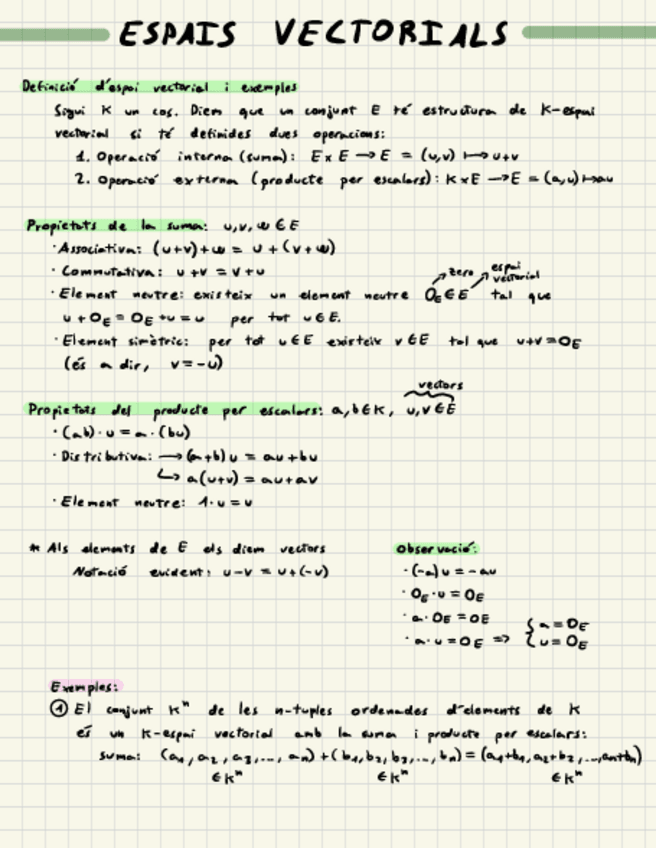 ESPAIS VECTORIALS
Definició d'espai vectorial i exemples
Sigui K un cos. Diem que un conjunt E té estructura de K-espai
vectorial si té definides dues operacions:
1. Operació interna (suma): E x E → E = (u,v) ↦ u+v
2. Operació externa (producte per escalars): K x E → E = (a,u) ↦ au
Propietats de la suma: u,v,w ∈ E
· Associativa: (u+v)+w = u+(v+w)
· Commutativa: u+v = v+u
zero espai
vectorial
· Element neutre: existeix un element neutre 0_E ∈ E tal que
u+0_E = 0_E+u = u per tot u ∈ E.
· Element simètric: per tot u ∈ E existeix v ∈ E tal que u+v = 0_E
(és a dir, v = -u)
vectors
Propietats del producte per escalars: a,b ∈ K, u,v ∈ E
· (ab)·u = a·(bu)
· Distributiva: → (a+b)u = au+bu
↳ a(u+v) = au+av
· Element neutre: 1·u = u
* Als elements de E els diem vectors
Notació evident: u-v = u+(-v)
Observació:
· (-a)u = -au
· 0_E·u = 0_E
· a·0_E = 0_E
· a·u = 0_E => { a = 0_E
u = 0_E
Exemples:
① El conjunt K^n de les n-tuples ordenades d'elements de K
és un K-espai vectorial amb la suma i producte per escalars:
suma: (a₁, a₂, a₃, ..., aₙ) + (b₁, b₂, b₃, ..., bₙ) = (a₁+b₁, a₂+b₂, ..., aₙ+bₙ)
∈ K^n ∈ K^n ∈ K^n